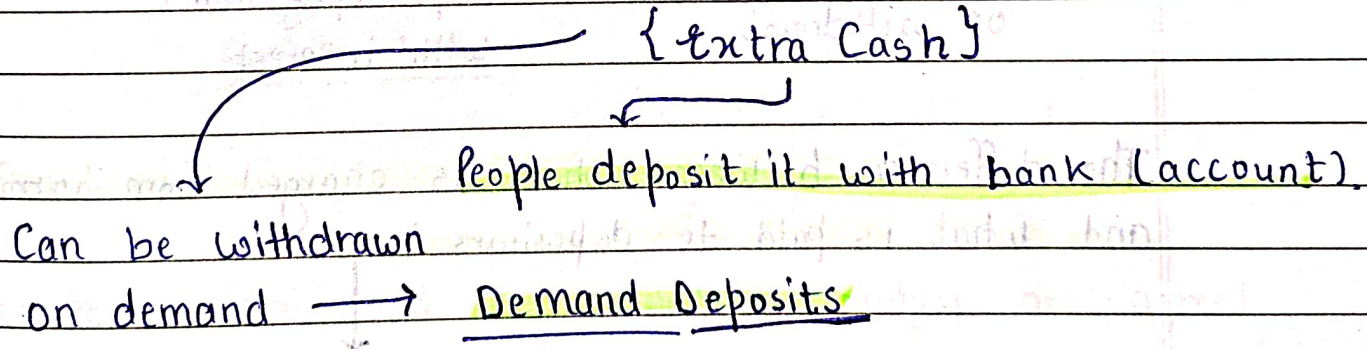 { Extra Cash }
People deposit it with bank (account).
Can be withdrawn
on demand → Demand Deposits